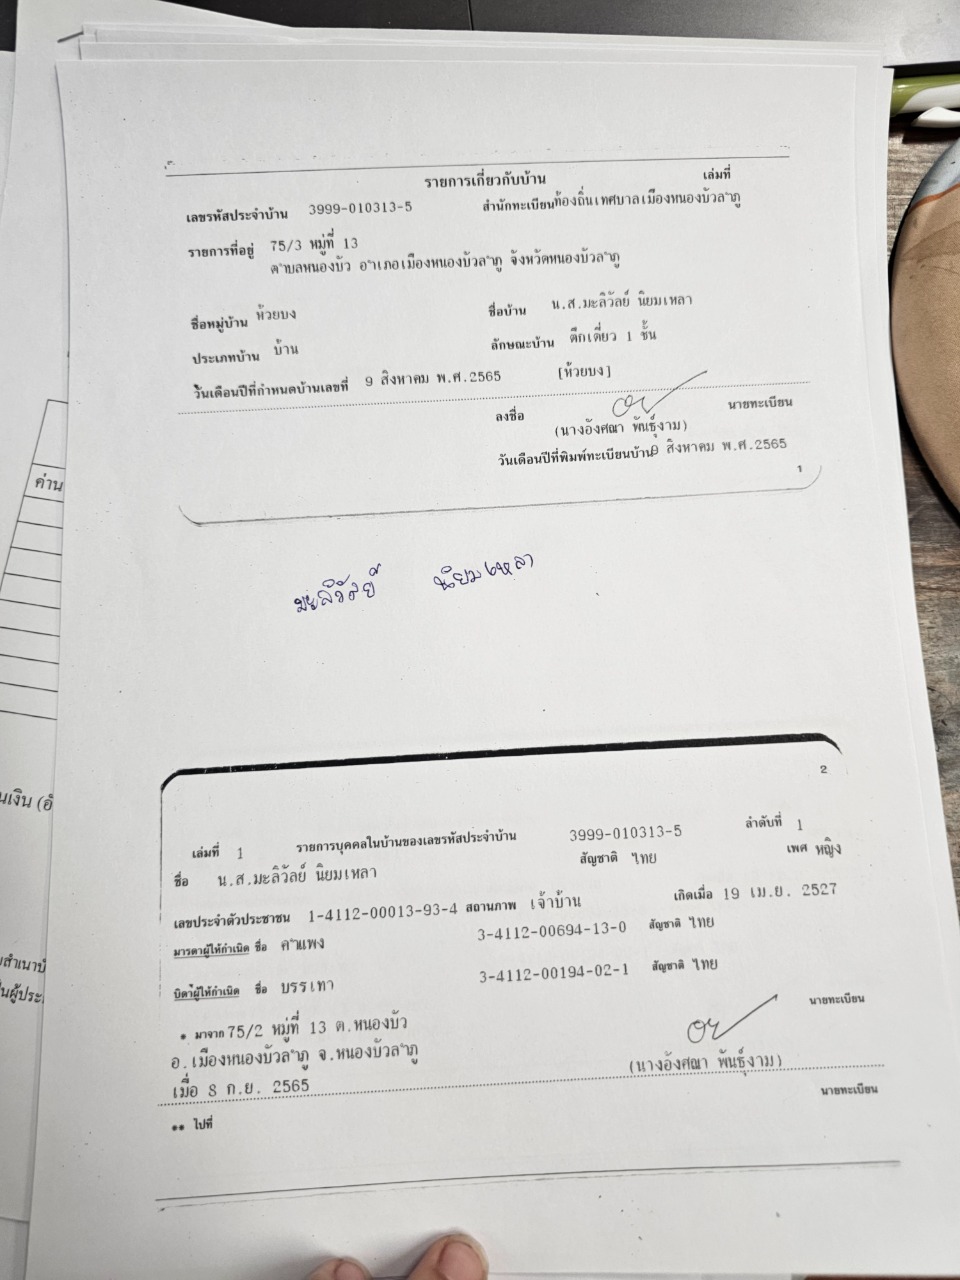 รายการเกี่ยวกับบ้าน เล่มที่
เลขรหัสประจำบ้าน 3999-010313-5 สำนักทะเบียน ท้องถิ่นเทศบาลเมืองหนองบัวลำภู
รายการที่อยู่ 75/3 หมู่ที่ 13
ตำบลหนองบัว อำเภอเมืองหนองบัวลำภู จังหวัดหนองบัวลำภู
ชื่อหมู่บ้าน ห้วยบง ชื่อบ้าน น.ส.มะลิวัลย์ นิยมเหลา
ประเภทบ้าน บ้าน ลักษณะบ้าน ตึกเดี่ยว 1 ชั้น
วันเดือนปีที่กำหนดบ้านเลขที่ 9 สิงหาคม พ.ศ.2565 [ห้วยบง]
ลงชื่อ นายทะเบียน
(นางอังศณา พันธุ์งาม)
วันเดือนปีที่พิมพ์ทะเบียนบ้าน 9 สิงหาคม พ.ศ.2565
1
มะลิวัลย์ นิยมเหลา
2
เล่มที่ 1 รายการบุคคลในบ้านของเลขรหัสประจำบ้าน 3999-010313-5 ลำดับที่ 1
ชื่อ น.ส.มะลิวัลย์ นิยมเหลา สัญชาติ ไทย เพศ หญิง
เลขประจำตัวประชาชน 1-4112-00013-93-4 สถานภาพ เจ้าบ้าน เกิดเมื่อ 19 เม.ย. 2527
มารดาผู้ให้กำเนิด ชื่อ คำแพง 3-4112-00694-13-0 สัญชาติ ไทย
บิดาผู้ให้กำเนิด ชื่อ บรรเทา 3-4112-00194-02-1 สัญชาติ ไทย
* มาจาก 75/2 หมู่ที่ 13 ต.หนองบัว นายทะเบียน
อ.เมืองหนองบัวลำภู จ.หนองบัวลำภู (นางอังศณา พันธุ์งาม)
เมื่อ 8 ก.ย. 2565
** ไปที่ นายทะเบียน